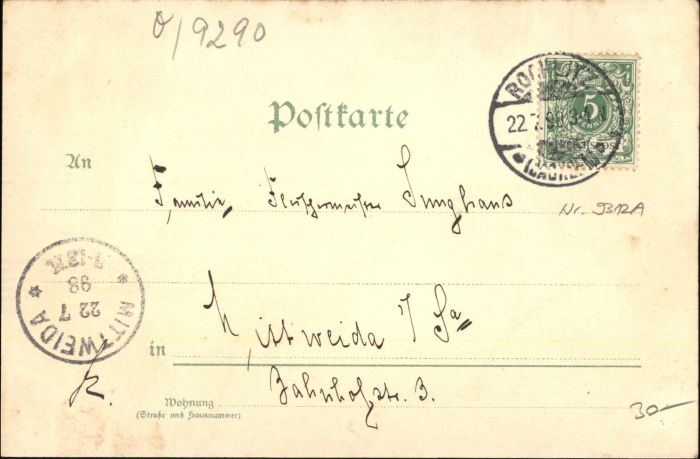 θ/9290
Postkarte
ROCHLITZ
22.7.98.3-4N
(SACHSEN)
5
An
Familie Fleischermeister Junghans
Nr. 9312A
MITTWEIDA
22 7
98
7-12N.
in
Mittweida i/Sa
Bahnhofstr. 3.
Wohnung
(Straße und Hausnummer)
30-